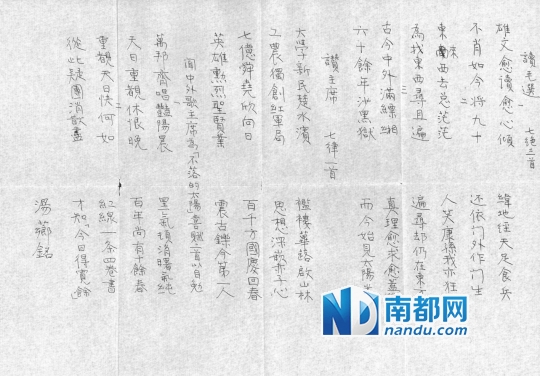 讚毛選 七绝三首
雄文愈读愈心倾 緯地往天足食兵
不肖如今将九十 还依门外作门生
二
東西去总茫茫 人笑康係我亦狂
來
為找東西尋且遍 遍尋却仍在東
三
古今中外滿縹緗 真理愈求愈蓋
六十餘年沙黑獄 而今始見太陽
讚主席 七律一首
大學新民楚水濱 襤褸華路啟山林
工農獨創紅軍局 思想深嵌赤子心
七億舜堯欣向日 百千方國慶回春
英雄勳烈聖賢業 震古鑠今第一人
闻中外歌主席為「不落的太陽」喜賦二首以自勉
萬邦齊唱豔陽晨 黑氣頓消曙氣純
天日重覩休恨晚 百年尚有十餘春
二
重覩天日快何如 紅線一条四卷書
從此疑團消歇盡 才知「今日得寬餘
湯薌銘
ND 南都网
nandu.com